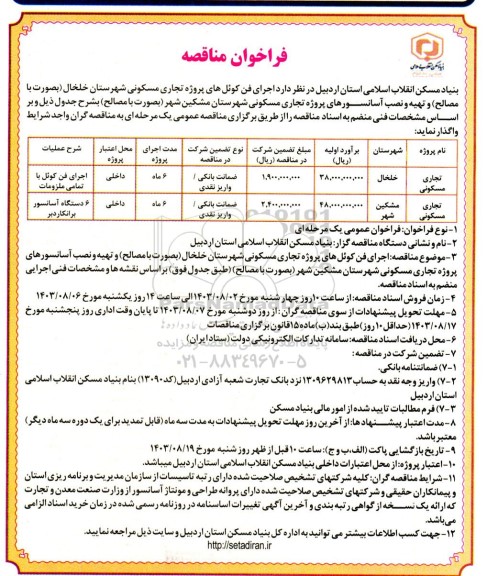 فراخوان مناقصه
بنیاد مسکن انقلاب اسلامی
بنیاد مسکن انقلاب اسلامی استان اردبیل در نظر دارد اجرای فن کوئل های پروژه تجاری مسکونی شهرستان خلخال (بصورت با
مصالح) و تهیه و نصب آسانسورهای پروژه تجاری مسکونی شهرستان مشکین شهر (بصورت با مصالح) بشرح جدول ذیل و بر
اساس مشخصات فنی منضم به اسناد مناقصه را از طریق برگزاری مناقصه عمومی یک مرحله ای به مناقصه گران واجد شرایط
واگذار نماید:
نام پروژه شهرستان برآورد اولیه (ریال) مبلغ تضمین شرکت در مناقصه (ریال) نوع تضمین شرکت در مناقصه مدت اجرای پروژه محل اعتبار پروژه شرح عملیات
تجاری مسکونی خلخال ۳۸,۰۰۰,۰۰۰,۰۰۰ ۱,۹۰۰,۰۰۰,۰۰۰ ضمانت بانکی / واریز نقدی ۶ ماه داخلی اجرای فن کوئل با تمامی ملزومات
تجاری مسکونی مشکین شهر ۴۸,۰۰۰,۰۰۰,۰۰۰ ۲,۴۰۰,۰۰۰,۰۰۰ ضمانت بانکی / واریز نقدی ۶ ماه داخلی ۶ دستگاه آسانسور برانکاردبر
۱- نوع فراخوان: فراخوان عمومی یک مرحله ای
۲- نام و نشانی دستگاه مناقصه گزار: بنیاد مسکن انقلاب اسلامی استان اردبیل
۳- موضوع مناقصه: اجرای فن کوئل های پروژه تجاری مسکونی شهرستان خلخال (بصورت با مصالح) و تهیه و نصب آسانسورهای
پروژه تجاری مسکونی شهرستان مشکین شهر (بصورت با مصالح) (طبق جدول فوق) براساس نقشه ها و مشخصات فنی اجرایی
منضم به اسناد مناقصه.
۴- زمان فروش اسناد مناقصه: از ساعت ۱۰ روز چهار شنبه مورخ ۱۴۰۳/۰۸/۰۲ الی ساعت ۱۴ روز یکشنبه مورخ ۱۴۰۳/۰۸/۰۶
۵- مهلت تحویل پیشنهادات از سوی مناقصه گران: از روز دوشنبه مورخ ۱۴۰۳/۰۸/۰۷ تا پایان وقت اداری روز پنجشنبه مورخ
۱۴۰۳/۰۸/۱۷ (حداقل ۱۰ روز) طبق بند (ب) ماده ۱۵ قانون برگزاری مناقصات
۶- محل دریافت اسناد مناقصه: سامانه تدارکات الکترونیکی دولت (ستاد ایران)
۷- تضمین شرکت در مناقصه:
۷-۱) ضمانتنامه بانکی.
۷-۲) واریز وجه نقد به حساب ۱۳۰۹۶۲۹۸۱۳ نزد بانک تجارت شعبه آزادی اردبیل (کد ۱۳۰۹۰) بنام بنیاد مسکن انقلاب اسلامی
استان اردبیل
۷-۳) فرم مطالبات تایید شده از امور مالی بنیاد مسکن
۸- مدت اعتبار پیشنهادها: از آخرین روز مهلت تحویل پیشنهادات به مدت سه ماه (قابل تمدید برای یک دوره سه ماه دیگر)
معتبر باشد.
۹- تاریخ بازگشایی پاکت (الف، ب و ج): ساعت ۱۰ قبل از ظهر روز شنبه مورخ ۱۴۰۳/۰۸/۱۹
۱۰- اعتبار پروژه: از محل اعتبارات داخلی بنیاد مسکن انقلاب اسلامی استان اردبیل میباشد.
۱۱- شرایط مناقصه گران: کلیه شرکتهای تشخیص صلاحیت شده دارای رتبه تاسیسات از سازمان مدیریت و برنامه ریزی استان
و پیمانکاران حقیقی و شرکتهای تشخیص صلاحیت شده دارای پروانه طراحی و مونتاژ آسانسور از وزارت صنعت معدن و تجارت
که ارائه یک نسخه از گواهی رتبه بندی و آخرین آگهی تغییرات اساسنامه در روزنامه رسمی شده در زمان خرید اسناد الزامی
می باشد.
۱۲- جهت کسب اطلاعات بیشتر می توانید به اداره کل بنیاد مسکن استان اردبیل و سایت ذیل مراجعه نمایید.
http://setadiran.ir
۰۲۱-۸۸۳۴۹۶۷۰-۵